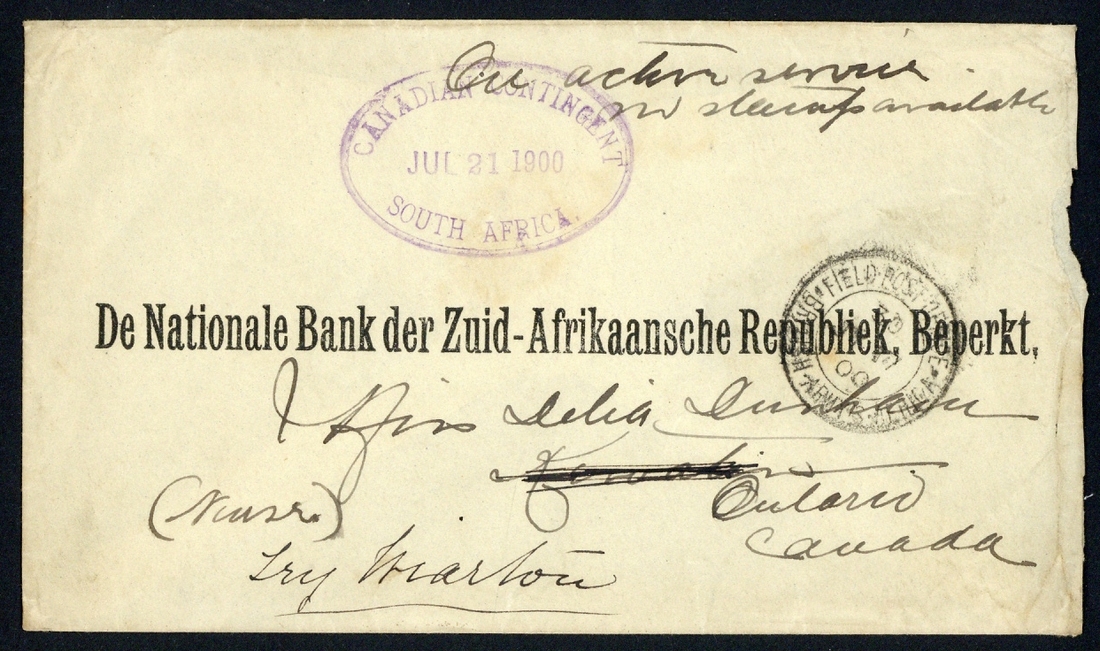 On active service
no stamps available
CANADIAN CONTINGENT
JUL 21 1900
SOUTH AFRICA.
FIELD POST OFFICE
BRITISH ARMY S. AFRICA
00
De Nationale Bank der Zuid-Afrikaansche Republiek, Beperkt.
Miss Delia Durham
Ontario
Canada
Try Wiarton